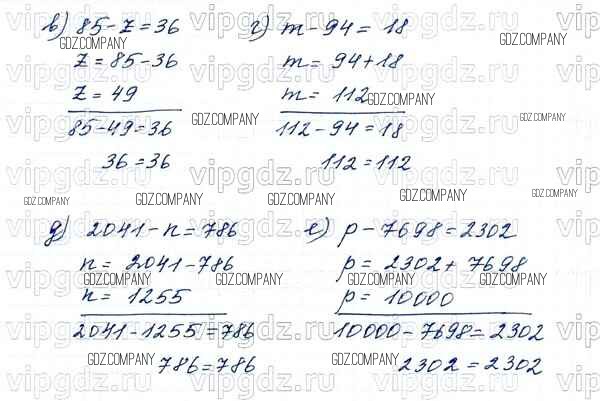 в) 85 - z = 36
z = 85 - 36
z = 49
85 - 49 = 36
36 = 36
г) m - 94 = 18
m = 94 + 18
m = 112
112 - 94 = 18
112 = 112
д) 2041 - n = 786
n = 2041 - 786
n = 1255
2041 - 1255 = 786
786 = 786
е) p - 7698 = 2302
p = 2302 + 7698
p = 10000
10000 - 7698 = 2302
2302 = 2302
GDZ.COMPANY
vipgdz.ru